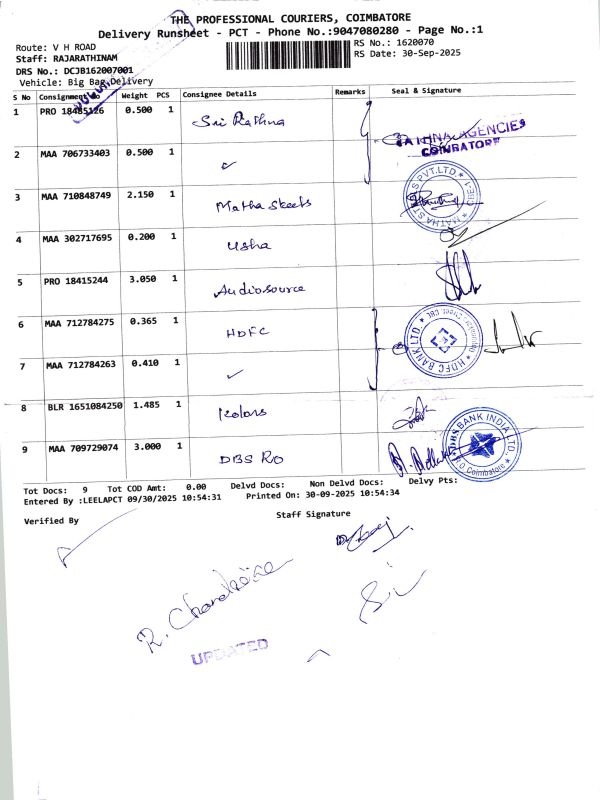 THE PROFESSIONAL COURIERS, COIMBATORE
Delivery Runsheet - PCT - Phone No.:9047080280 - Page No.:1
Route: V H ROAD
RS No.: 1620070
Staff: RAJARATHINAM
RS Date: 30-Sep-2025
DRS No.: DCJB162007001
Vehicle: Big Bag Delivery
S No Consignment No Weight PCS Consignee Details Remarks Seal & Signature
1 PRO 18485126 0.500 1 Sri Rathna
RATHNA AGENCIES
COIMBATORE
2 MAA 706733403 0.500 1 ✓
3 MAA 710848749 2.150 1 Matha Steels
4 MAA 302717695 0.200 1 Usha
5 PRO 18415244 3.050 1 Audiosource
6 MAA 712784275 0.365 1 HDFC
HDFC BANK LTD.
7 MAA 712784263 0.410 1 ✓
8 BLR 1651084250 1.485 1 Kolors
9 MAA 709729074 3.000 1 DBS RO
DBS BANK INDIA LTD.
Coimbatore
Tot Docs: 9 Tot COD Amt: 0.00 Delvd Docs: Non Delvd Docs: Delvy Pts:
Entered By :LEELAPCT 09/30/2025 10:54:31 Printed On: 30-09-2025 10:54:34
Verified By Staff Signature
UPDATED